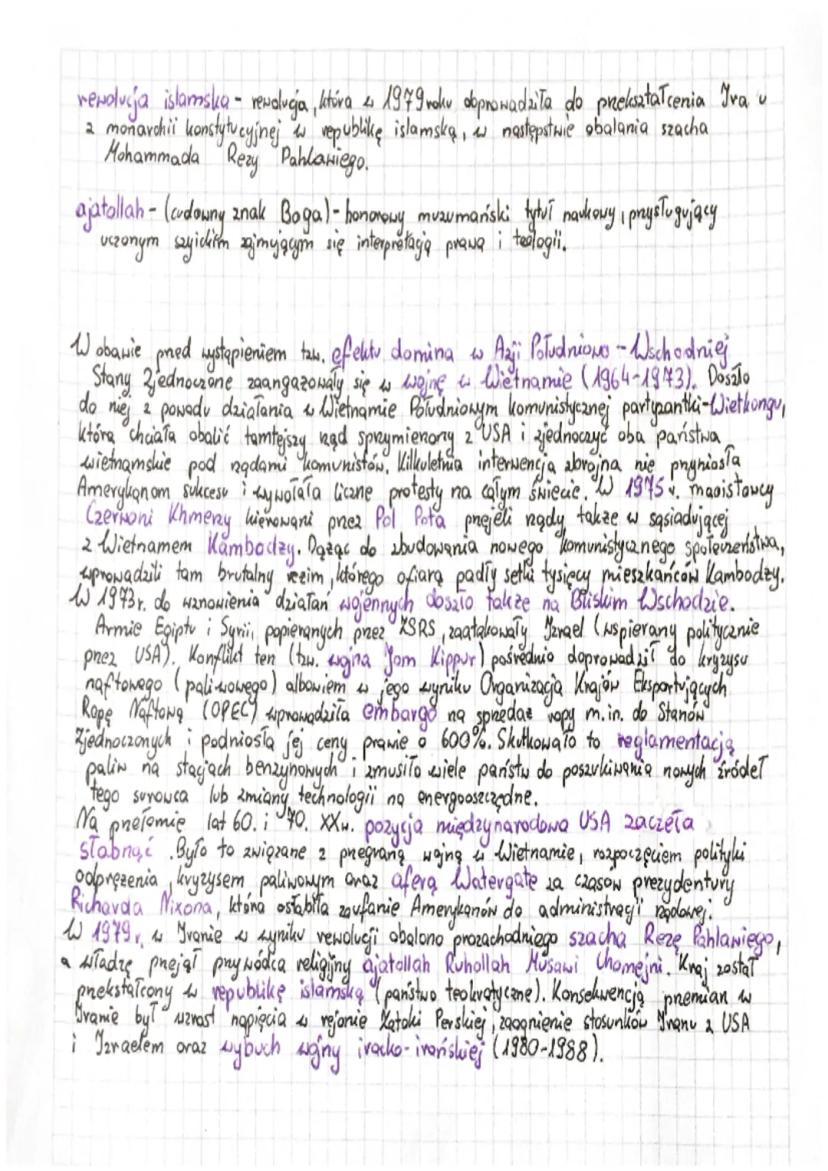 rewolucja islamska - rewolucja, która w 1979 roku doprowadziła do przekształcenia Iranu
z monarchii konstytucyjnej w republikę islamską, w następstwie obalania szacha
Mohammada Rezy Pahlawiego.
ajatollah - (cudowny znak Boga) - honorowy muzumański tytuł naukowy, przysługujący
uczonym szyickim zajmującym się interpretacją prawa i teologii.
W obawie przed wystąpieniem tzw. efektu domina w Azji Południowo-Wschodniej
Stany Zjednoczone zaangażowały się w wojnę w Wietnamie (1964-1973). Doszło
do niej z powodu działania w Wietnamie Południowym komunistycznej partyzantki-Wietkongu,
która chciała obalić tamtejszy rząd sprzymierzony z USA i zjednoczyć oba państwa
wietnamskie pod rządami komunistów. Kilkuletnia interwencja zbrojna nie przyniosła
Amerykanom sukcesu i wywołała liczne protesty na całym świecie. W 1975 r. maoistowcy
Czerwoni Khmerzy kierowani przez Pol Pota przejeli rządy także w sąsiadującej
z Wietnamem Kambodży. Dążąc do zbudowania nowego komunistycznego społeczeństwa,
wprowadzili tam brutalny reżim, którego ofiarą padły setki tysięcy mieszkańców Kambodży.
W 1973r. do wznowienia działań wojennych doszło także na Bliskim Wschodzie.
Armie Egiptu i Syrii, popieranych przez ZSRS, zaatakowały Izrael (wspierany politycznie
przez USA). Konflikt ten (tzw. wojna Jom Kippur) pośrednio doprowadził do kryzysu
naftowego (paliwowego) albowiem w jego wyniku Organizacja Krajów Eksportujących
Ropę Naftową (OPEC) wprowadziła embargo na sprzedaż ropy m.in. do Stanów
Zjednoczonych i podniosła jej ceny prawie o 600%. Skutkowało to reglamentacją
paliw na stacjach benzynowych i zmusiło wiele państw do poszukiwania nowych źródeł
tego surowca lub zmiany technologii na energooszczędne.
Na przełomie lat 60. i 70. XXw. pozycja międzynarodowa USA zaczęła
słabnąć. Było to związane z przegraną wojną w Wietnamie, rozpoczęciem polityki
odprężenia, kryzysem paliwowym oraz aferą Watergate za czasów prezydentury
Richarda Nixona, która osłabiła zaufanie Amerykanów do administracji rządowej.
W 1979r. w Iranie w wyniku rewolucji obalono prozachodniego szacha Rezę Pahlawiego,
a władzę przejął przywódca religijny ajatollah Ruhollah Musawi Chomejni. Kraj został
przekształcony w republikę islamską (państwo teokratyczne). Konsekwencją przemian w
Iranie był wzrost napięcia w rejonie Zatoki Perskiej, zaognienie stosunków Iranu z USA
i Izraelem oraz wybuch wojny iracko-irańskiej (1980-1988).